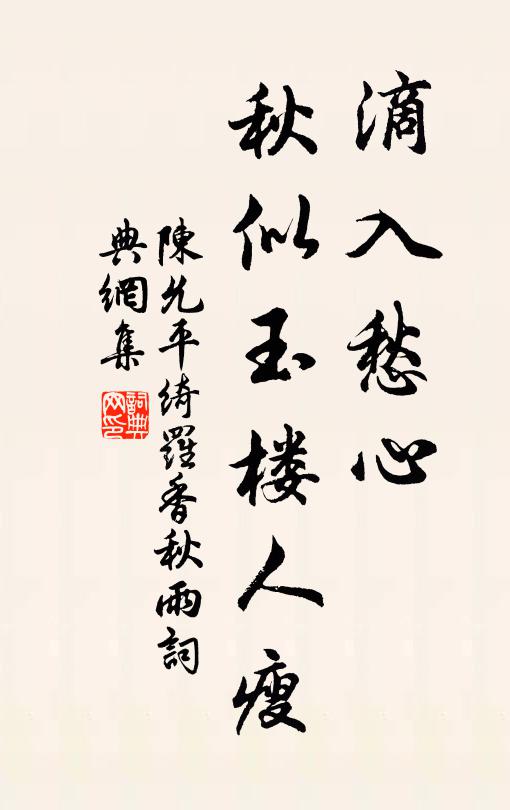 滴入愁心
秋似玉楼人瘦
陳允平綺羅香秋雨詞
典網集
詞典網印